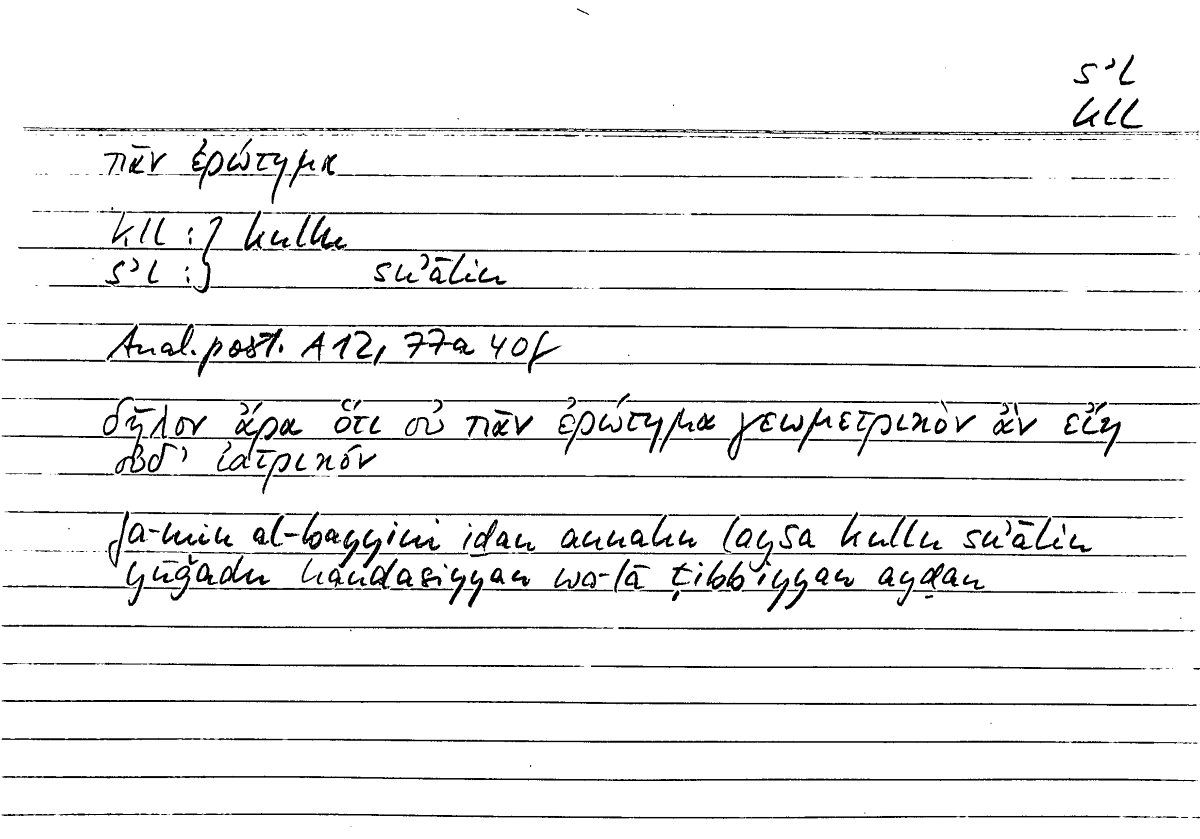 sʾl
kll
πᾶν ἐρώτημα
kll :} kullu
sʾl :} suʾālin
Anal. post. A 12, 77a 40f
δῆλον ἄρα ὅτι οὐ πᾶν ἐρώτημα γεωμετρικὸν ἂν εἴη
οὐδ' ἰατρικόν
fa-min al-bayyini iḏan annahu laysa kullu suʾālin
yūǧadu handasiyyan wa-lā ṭibbiyyan ayḍan